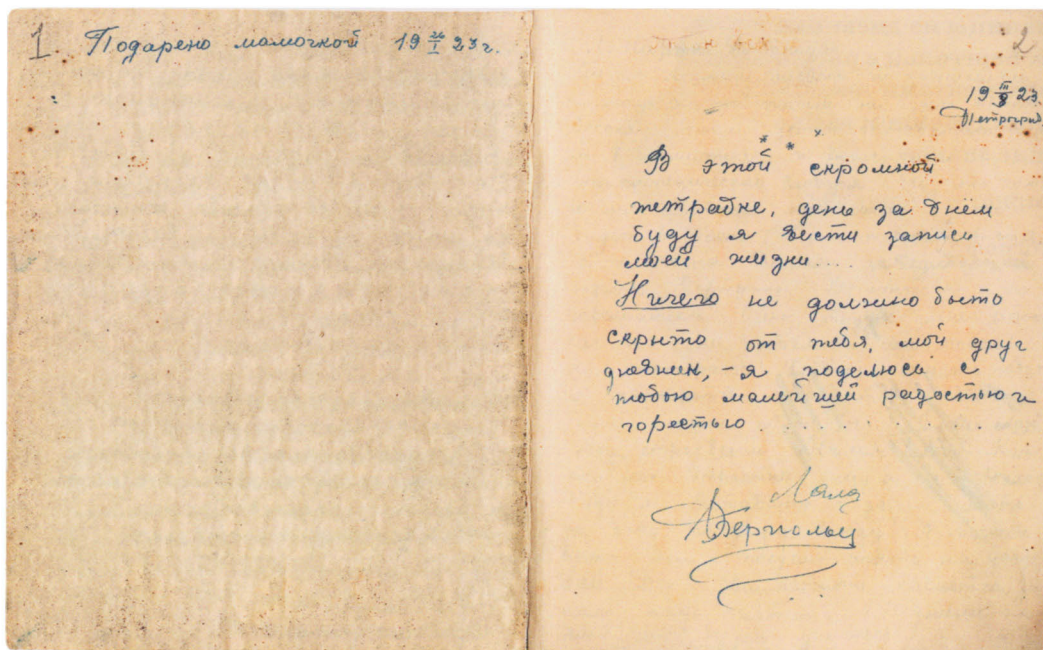 1
Подарено мамочкой 19 26/I 23 г.
2
19 III/8 23.
Петроград.
В этой скромной
тетрадке, день за днем
буду я вести записи
моей жизни....
Ничего не должно быть
скрыто от тебя, мой друг
дневник, - я поделюсь с
тобою малейшей радостью и
горестью . . . . . . . . .
Ляля
Берггольц